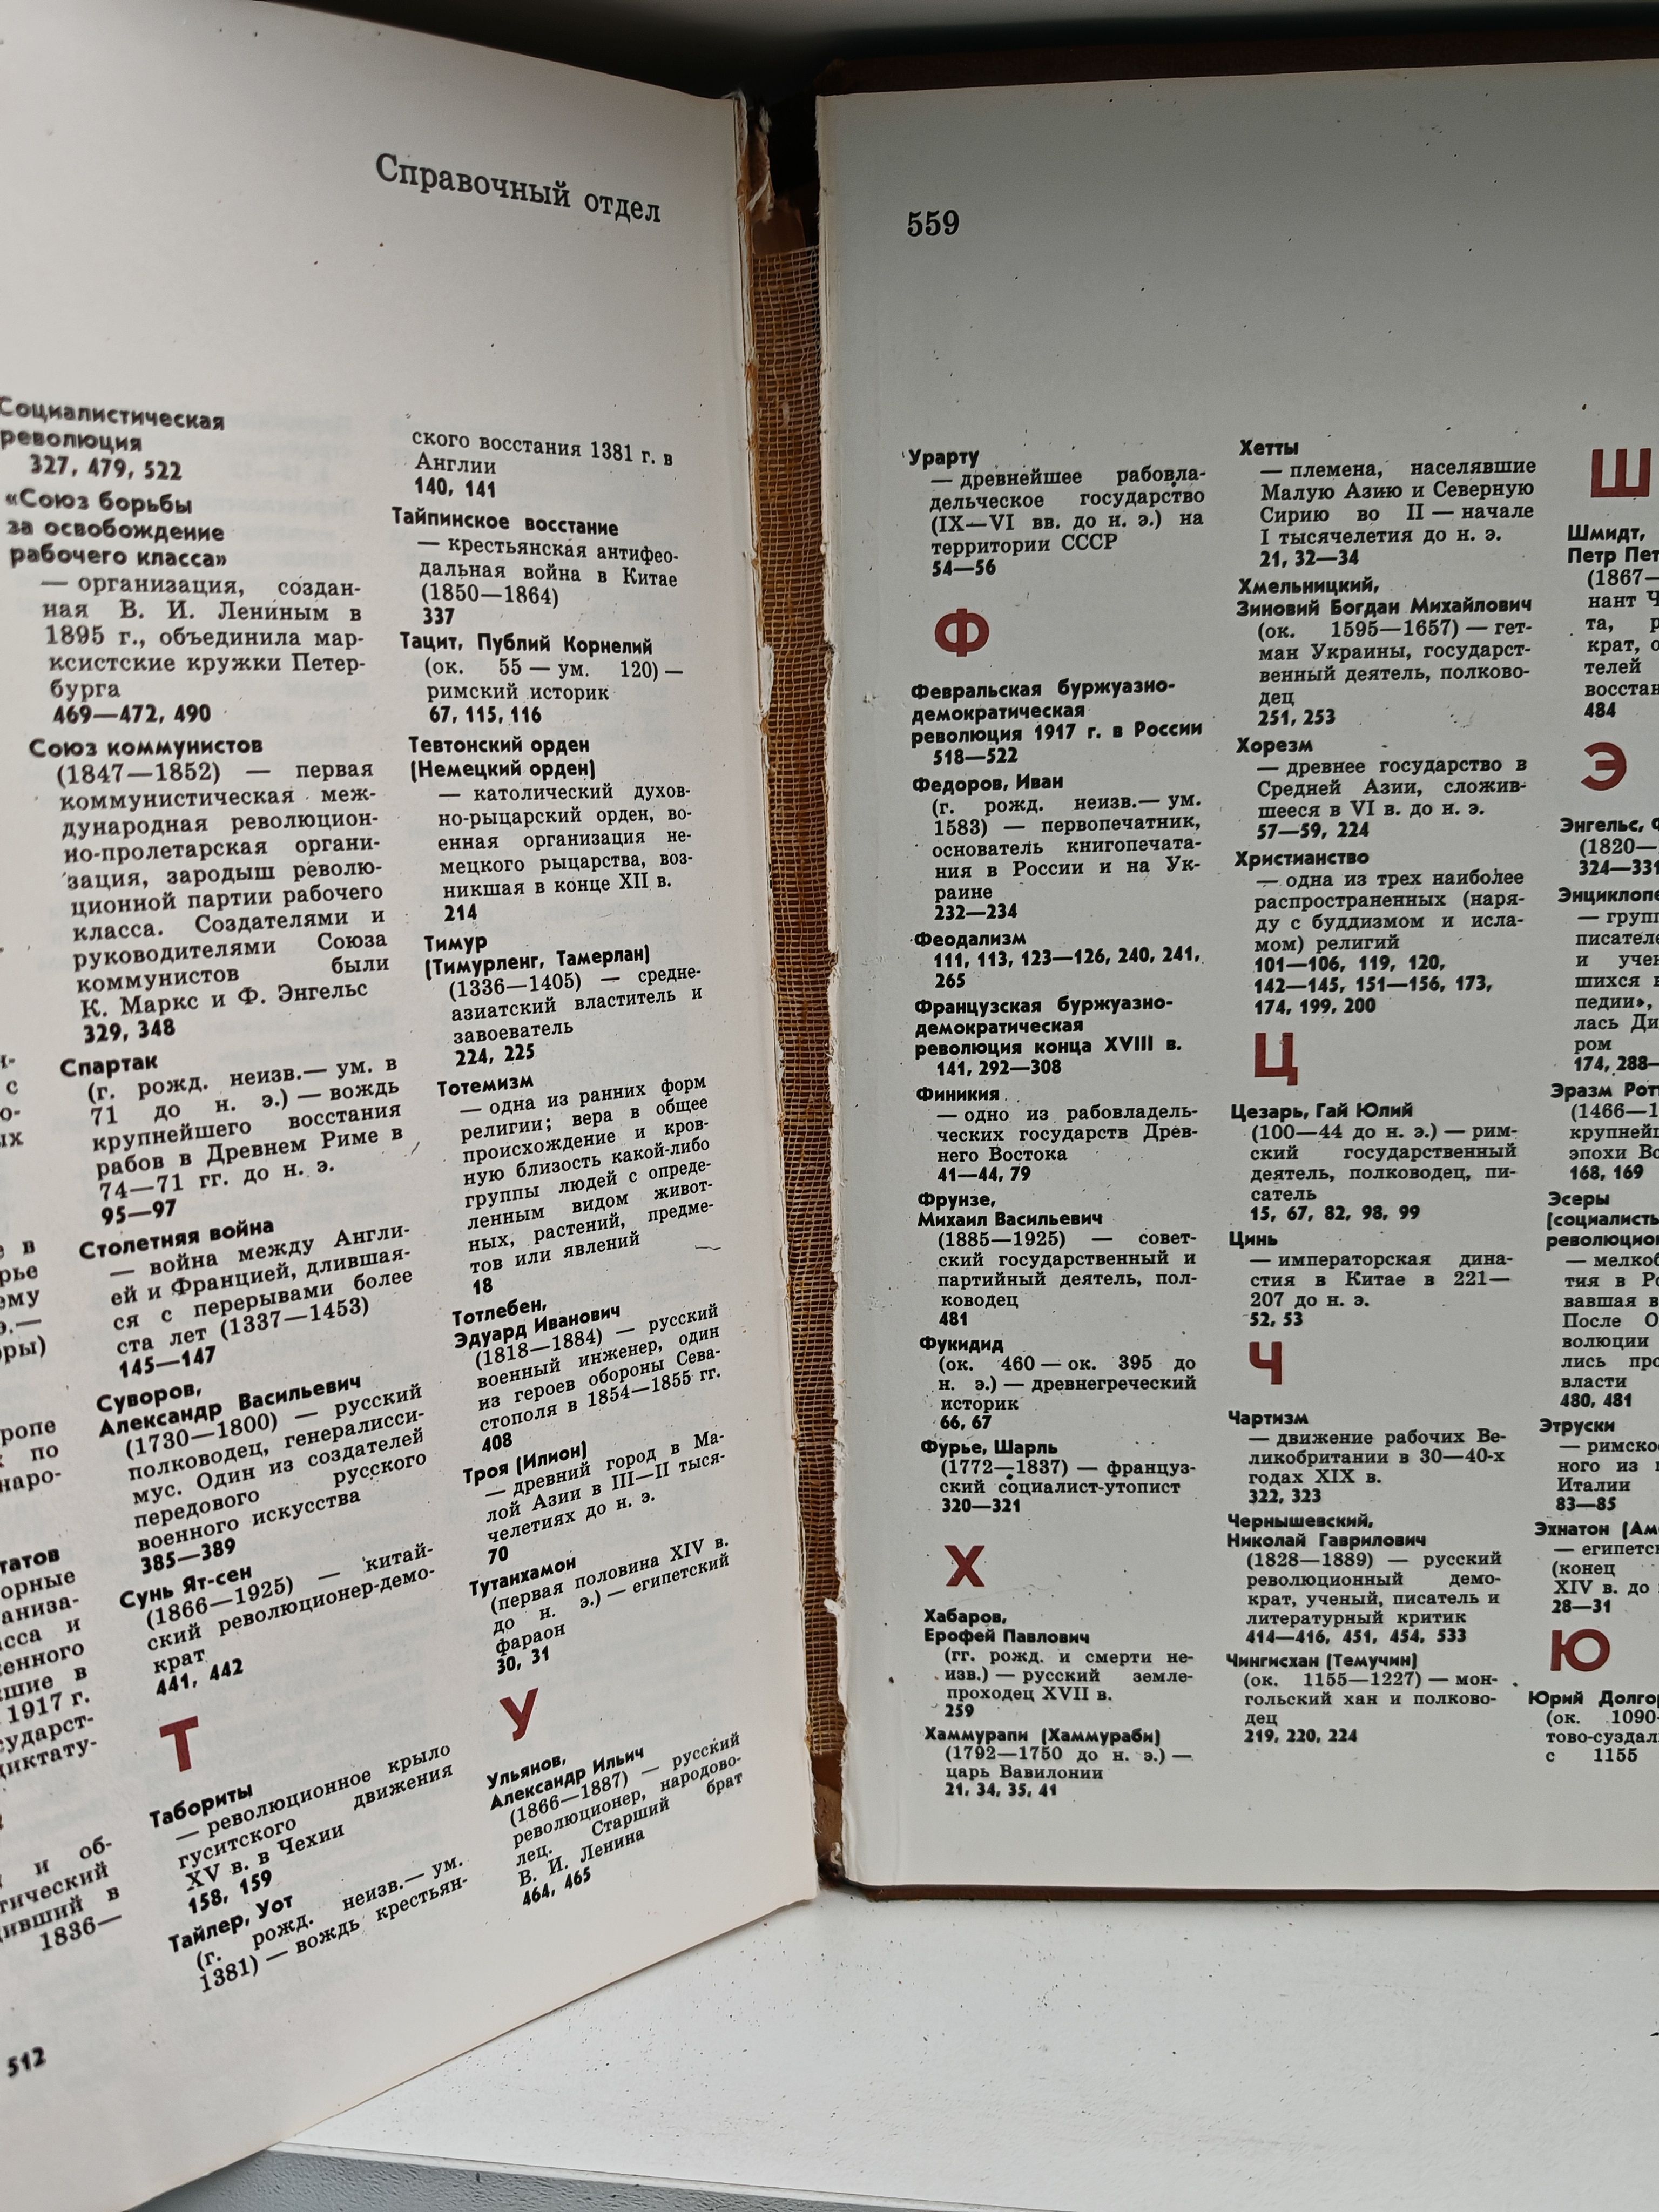 Справочный отдел
Социалистическая
революция
327, 479, 522
«Союз борьбы
за освобождение
рабочего класса»
— организация, создан-
ная В. И. Лениным в
1895 г., объединила мар-
ксистские кружки Петер-
бурга
469—472, 490
Союз коммунистов
(1847—1852) — первая
коммунистическая меж-
дународная революцион-
но-пролетарская органи-
зация, зародыш револю-
ционной партии рабочего
класса. Создателями и
руководителями Союза
коммунистов были
К. Маркс и Ф. Энгельс
329, 348
Спартак
(г. рожд. неизв.— ум. в
71 до н. э.) — вождь
крупнейшего восстания
рабов в Древнем Риме в
74—71 гг. до н. э.
95—97
Столетняя война
— война между Англи-
ей и Францией, длившая-
ся с перерывами более
ста лет (1337—1453)
145—147
Суворов,
Александр Васильевич
(1730—1800) — русский
полководец, генералисси-
мус. Один из создателей
передового русского
военного искусства
385—389
Сунь Ят-сен
(1866—1925) — китай-
ский революционер-демо-
крат
441, 442
Т
Табориты
— революционное крыло
гуситского движения
XV в. в Чехии
158, 159
Тайлер, Уот
(г. рожд. неизв.— ум.
1381) — вождь крестьян-
ского восстания 1381 г. в
Англии
140, 141
Тайпинское восстание
— крестьянская антифео-
дальная война в Китае
(1850—1864)
337
Тацит, Публий Корнелий
(ок. 55 — ум. 120) —
римский историк
67, 115, 116
Тевтонский орден
(Немецкий орден)
— католический духов-
но-рыцарский орден, во-
енная организация не-
мецкого рыцарства, воз-
никшая в конце XII в.
214
Тимур
(Тимурленг, Тамерлан)
(1336—1405) — средне-
азиатский властитель и
завоеватель
224, 225
Тотемизм
— одна из ранних форм
религии; вера в общее
происхождение и кров-
ную близость какой-либо
группы людей с опреде-
ленным видом живот-
ных, растений, предме-
тов или явлений
18
Тотлебен,
Эдуард Иванович
(1818—1884) — русский
военный инженер, один
из героев обороны Сева-
стополя в 1854—1855 гг.
408
Троя (Илион)
— древний город в Ма-
лой Азии в III—II тыся-
челетиях до н. э.
70
Тутанхамон
(первая половина XIV в.
до н. э.) — египетский
фараон
30, 31
У
Ульянов,
Александр Ильич
(1866—1887) — русский
революционер, народово-
лец. Старший брат
В. И. Ленина
464, 465
512
559
Урарту
— древнейшее рабовла-
дельческое государство
(IX—VI вв. до н. э.) на
территории СССР
54—56
Ф
Февральская буржуазно-
демократическая
революция 1917 г. в России
518—522
Федоров, Иван
(г. рожд. неизв.— ум.
1583) — первопечатник,
основатель книгопечата-
ния в России и на Ук-
раине
232—234
Феодализм
111, 113, 123—126, 240, 241,
265
Французская буржуазно-
демократическая
революция конца XVIII в.
141, 292—308
Финикия
— одно из рабовладель-
ческих государств Древ-
него Востока
41—44, 79
Фрунзе,
Михаил Васильевич
(1885—1925) — совет-
ский государственный и
партийный деятель, пол-
ководец
481
Фукидид
(ок. 460 — ок. 395 до
н. э.) — древнегреческий
историк
66, 67
Фурье, Шарль
(1772—1837) — француз-
ский социалист-утопист
320—321
Х
Хабаров,
Ерофей Павлович
(гг. рожд. и смерти не-
изв.) — русский земле-
проходец XVII в.
259
Хаммурапи (Хаммураби)
(1792—1750 до н. э.) —
царь Вавилонии
21, 34, 35, 41
Хетты
— племена, населявшие
Малую Азию и Северную
Сирию во II — начале
I тысячелетия до н. э.
21, 32—34
Хмельницкий,
Зиновий Богдан Михайлович
(ок. 1595—1657) — гет-
ман Украины, государст-
венный деятель, полково-
дец
251, 253
Хорезм
— древнее государство в
Средней Азии, сложив-
шееся в VI в. до н. э.
57—59, 224
Христианство
— одна из трех наиболее
распространенных (наря-
ду с буддизмом и исла-
мом) религий
101—106, 119, 120,
142—145, 151—156, 173,
174, 199, 200
Ц
Цезарь, Гай Юлий
(100—44 до н. э.) — рим-
ский государственный
деятель, полководец, пи-
сатель
15, 67, 82, 98, 99
Цинь
— императорская дина-
стия в Китае в 221—
207 до н. э.
52, 53
Ч
Чартизм
— движение рабочих Ве-
ликобритании в 30—40-х
годах XIX в.
322, 323
Чернышевский,
Николай Гаврилович
(1828—1889) — русский
революционный демо-
крат, ученый, писатель и
литературный критик
414—416, 451, 454, 533
Чингисхан (Темучин)
(ок. 1155—1227) — мон-
гольский хан и полково-
дец
219, 220, 224
Ш
Шмидт,
Петр
(1867—
нант
та,
крат,
телей
484
Э
Энгельс,
(1820—
324—331
— 
писател
и
шихся
педии»,
лась
ром
174, 288—
Эразм
(1466—
эпохи
168, 169
Эсеры
— 
тия в
вавшая
После
волюции
лись
власти
480, 481
Этруски
—
ного из
Италии
83—85
Эхнатон
—
(конец
XIV в. до
28—31
Ю
Юрий
(ок. 1090—
с 1155